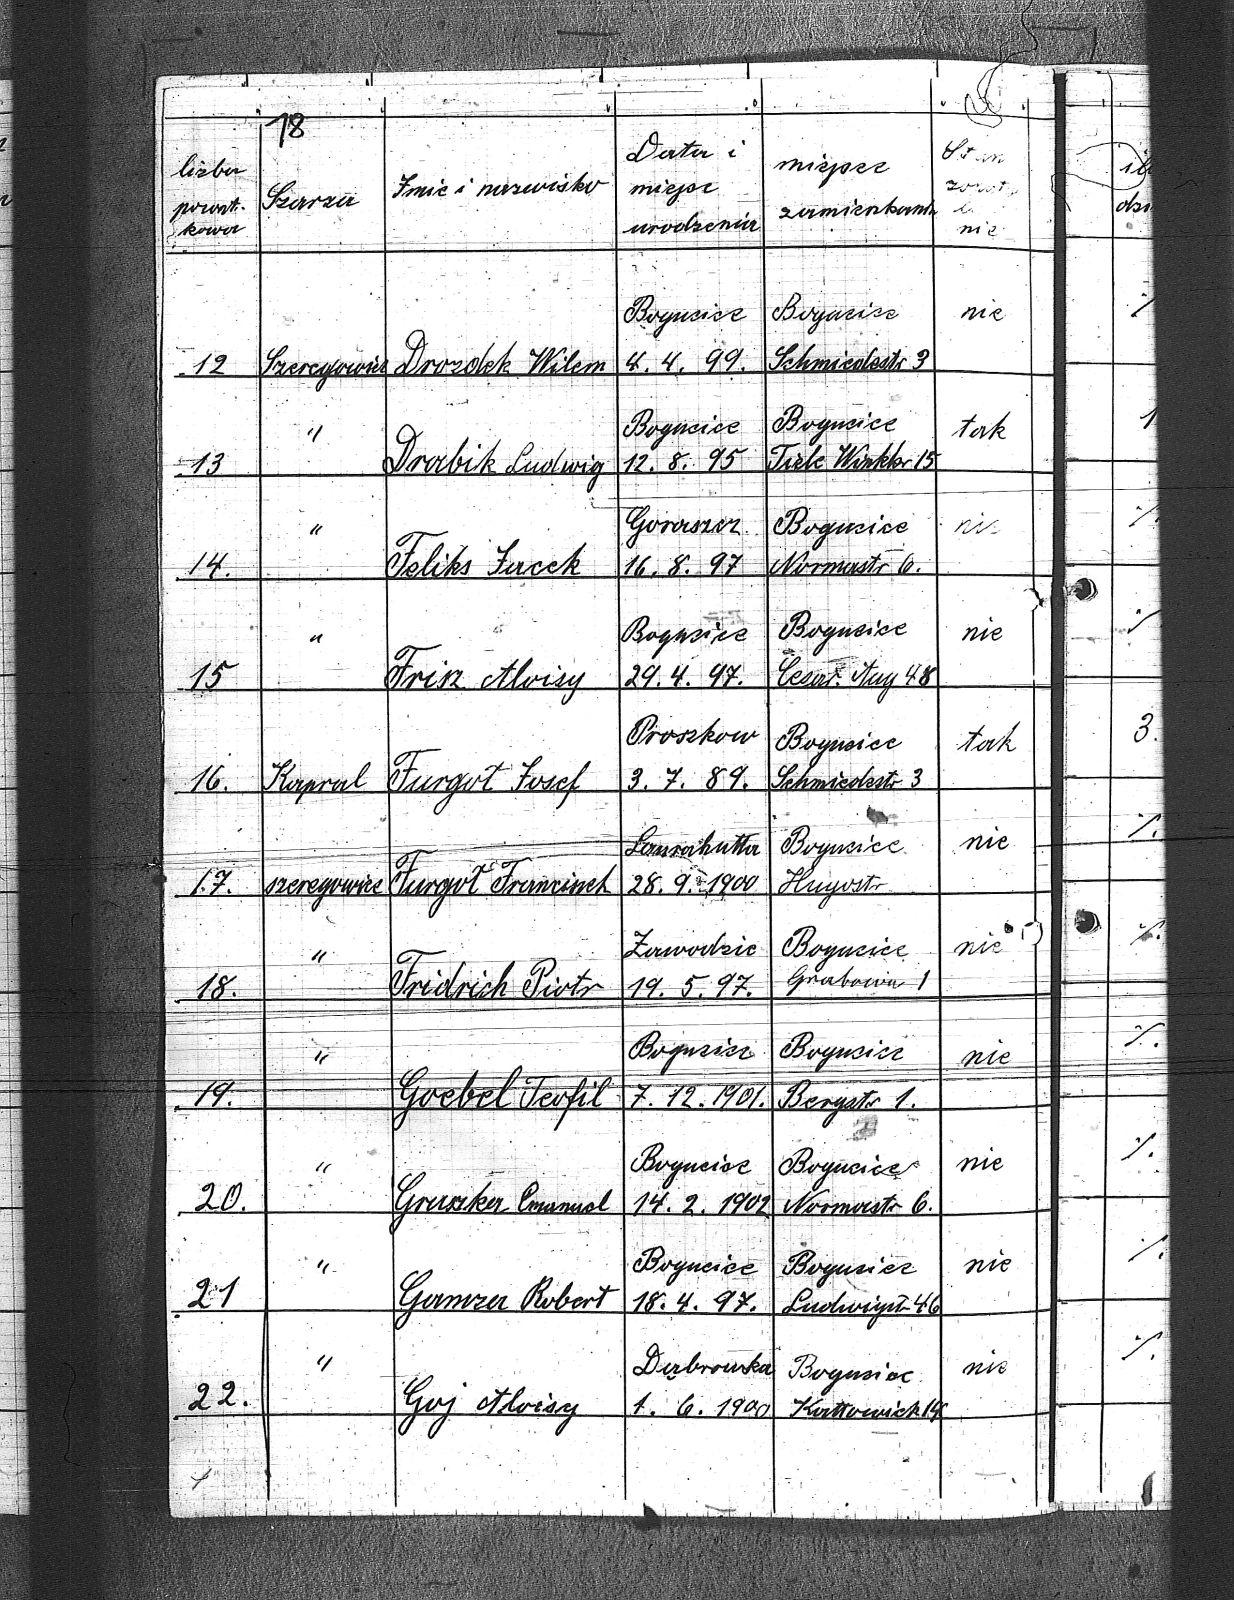 18
liczba porząt. kowa
Szarża
Imię i nazwisko
Data i miejsc urodzenia
miejsce zamieszkania
nie
Bogucice Bogucice nie
12 Szeregowiec Drozdek Wilem 4. 4. 99. Schmiedestr 3
" Bogucice Bogucice tak 1
13 Drabik Ludwig 12. 8. 95 Tiele Winkler 15
" Bogucice
14. Feliks Jacek 16. 8. 97 Normastr 6.
" Bogucice Bogucice nie
15 Frisz Aloisy 29. 4. 97. Cesar. Aug 48
Proszkow Bogucice tak 3.
16. Kapral Furgot Josef 3. 7. 89. Schmiedestr 3
Laurahutta Bogucice nie
17. szeregowiec Furgot Francisek 28. 9. 1900 Hugostr
" Zawodzie Bogucice nie
18. Fridrich Piotr 19. 5. 97. Grabowa 1
" Bogucice Bogucice nie
19. Goebel Teofil 7. 12. 1901. Bergstr 1.
" Bogucice Bogucice nie
20. Gruszka Emanuel 14. 2. 1902 Normastr 6.
" Bogucice Bogucice nie
21 Gamza Robert 18. 4. 97. Ludwigstr 46
" Dabrowka Bogucice nie
22. Goj Aloisy 1. 6. 1900